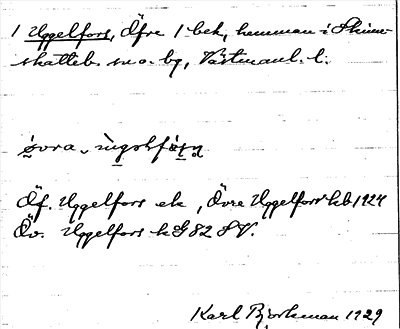 1 Uggelfors, Öfre 1 bek, hemman i Skinn-
skatteb. sn o. by, Västmanl. l.
Öf. Uggelfors ek, Övre Uggelfors kb 1924
Öv. Uggelfors k G 82 SV.
Karl Bjorkman 1929